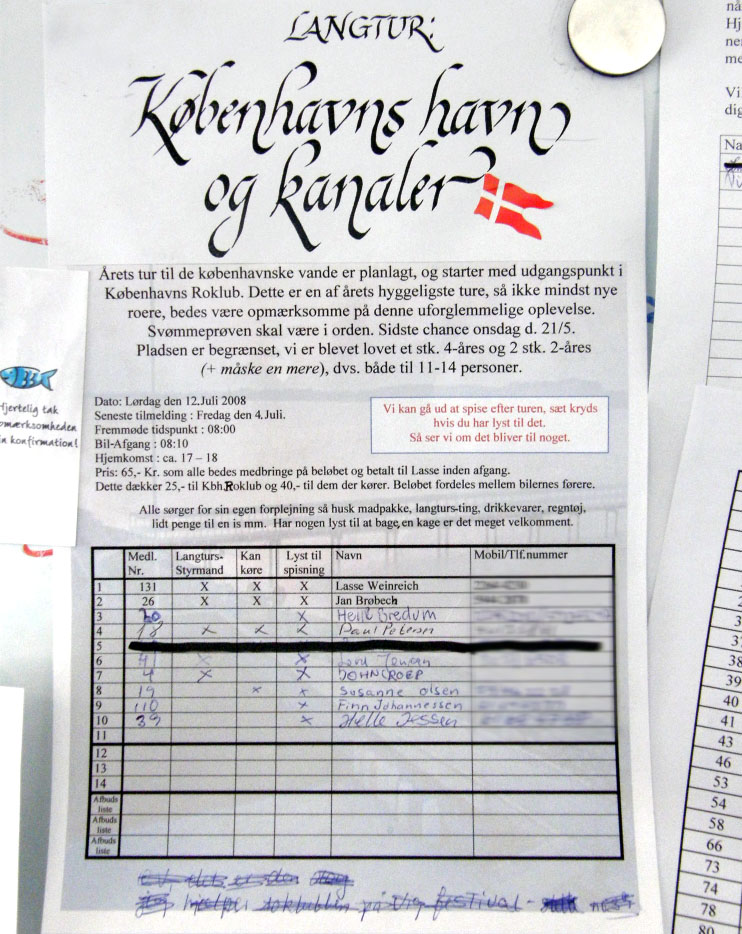 LANGTUR:
Københavns havn
og kanaler
Årets tur til de københavnske vande er planlagt, og starter med udgangspunkt i
Københavns Roklub. Dette er en af årets hyggeligste ture, så ikke mindst nye
roere, bedes være opmærksomme på denne uforglemmelige oplevelse.
Svømmeprøven skal være i orden. Sidste chance onsdag d. 21/5.
Pladsen er begrænset, vi er blevet lovet et stk. 4-åres og 2 stk. 2-åres
(+ måske en mere), dvs. både til 11-14 personer.
Dato: Lørdag den 12.Juli 2008
Seneste tilmelding : Fredag den 4.Juli.
Fremmøde tidspunkt : 08:00
Bil-Afgang : 08:10
Hjemkomst : ca. 17 – 18
Pris: 65,- Kr. som alle bedes medbringe på beløbet og betalt til Lasse inden afgang.
Dette dækker 25,- til Kbh.Roklub og 40,- til dem der kører. Beløbet fordeles mellem bilernes førere.
Vi kan gå ud at spise efter turen, sæt kryds
hvis du har lyst til det.
Så ser vi om det bliver til noget.
Alle sørger for sin egen forplejning så husk madpakke, langturs-ting, drikkevarer, regntøj,
lidt penge til en is mm. Har nogen lyst til at bage en kage er det meget velkomment.
Medl. Nr. Langturs-Styrmand Kan køre Lyst til spisning Navn Mobil/Tlf.nummer
1 131 X X X Lasse Weinreich
2 26 X X X Jan Brøbech
3 20 X Helle Bredum
4 18 X X X Paul Petersen
5
6 X X
7 4 X X JOHN CROEP
8 19 X X Susanne olsen
9 110 X Finn Johannessen
10 39 X Helle Jessen
11
12
13
14
Afbuds liste
Afbuds liste
Afbuds liste
hjælper roklubben på Vig festival -
Hjertelig tak
opmærksomheden
in konfirmation!
nå
Hj
ner
me
Vi
dig
Na
37
38
39
40
41
43
46
53
54
58
66
73
74
78
80